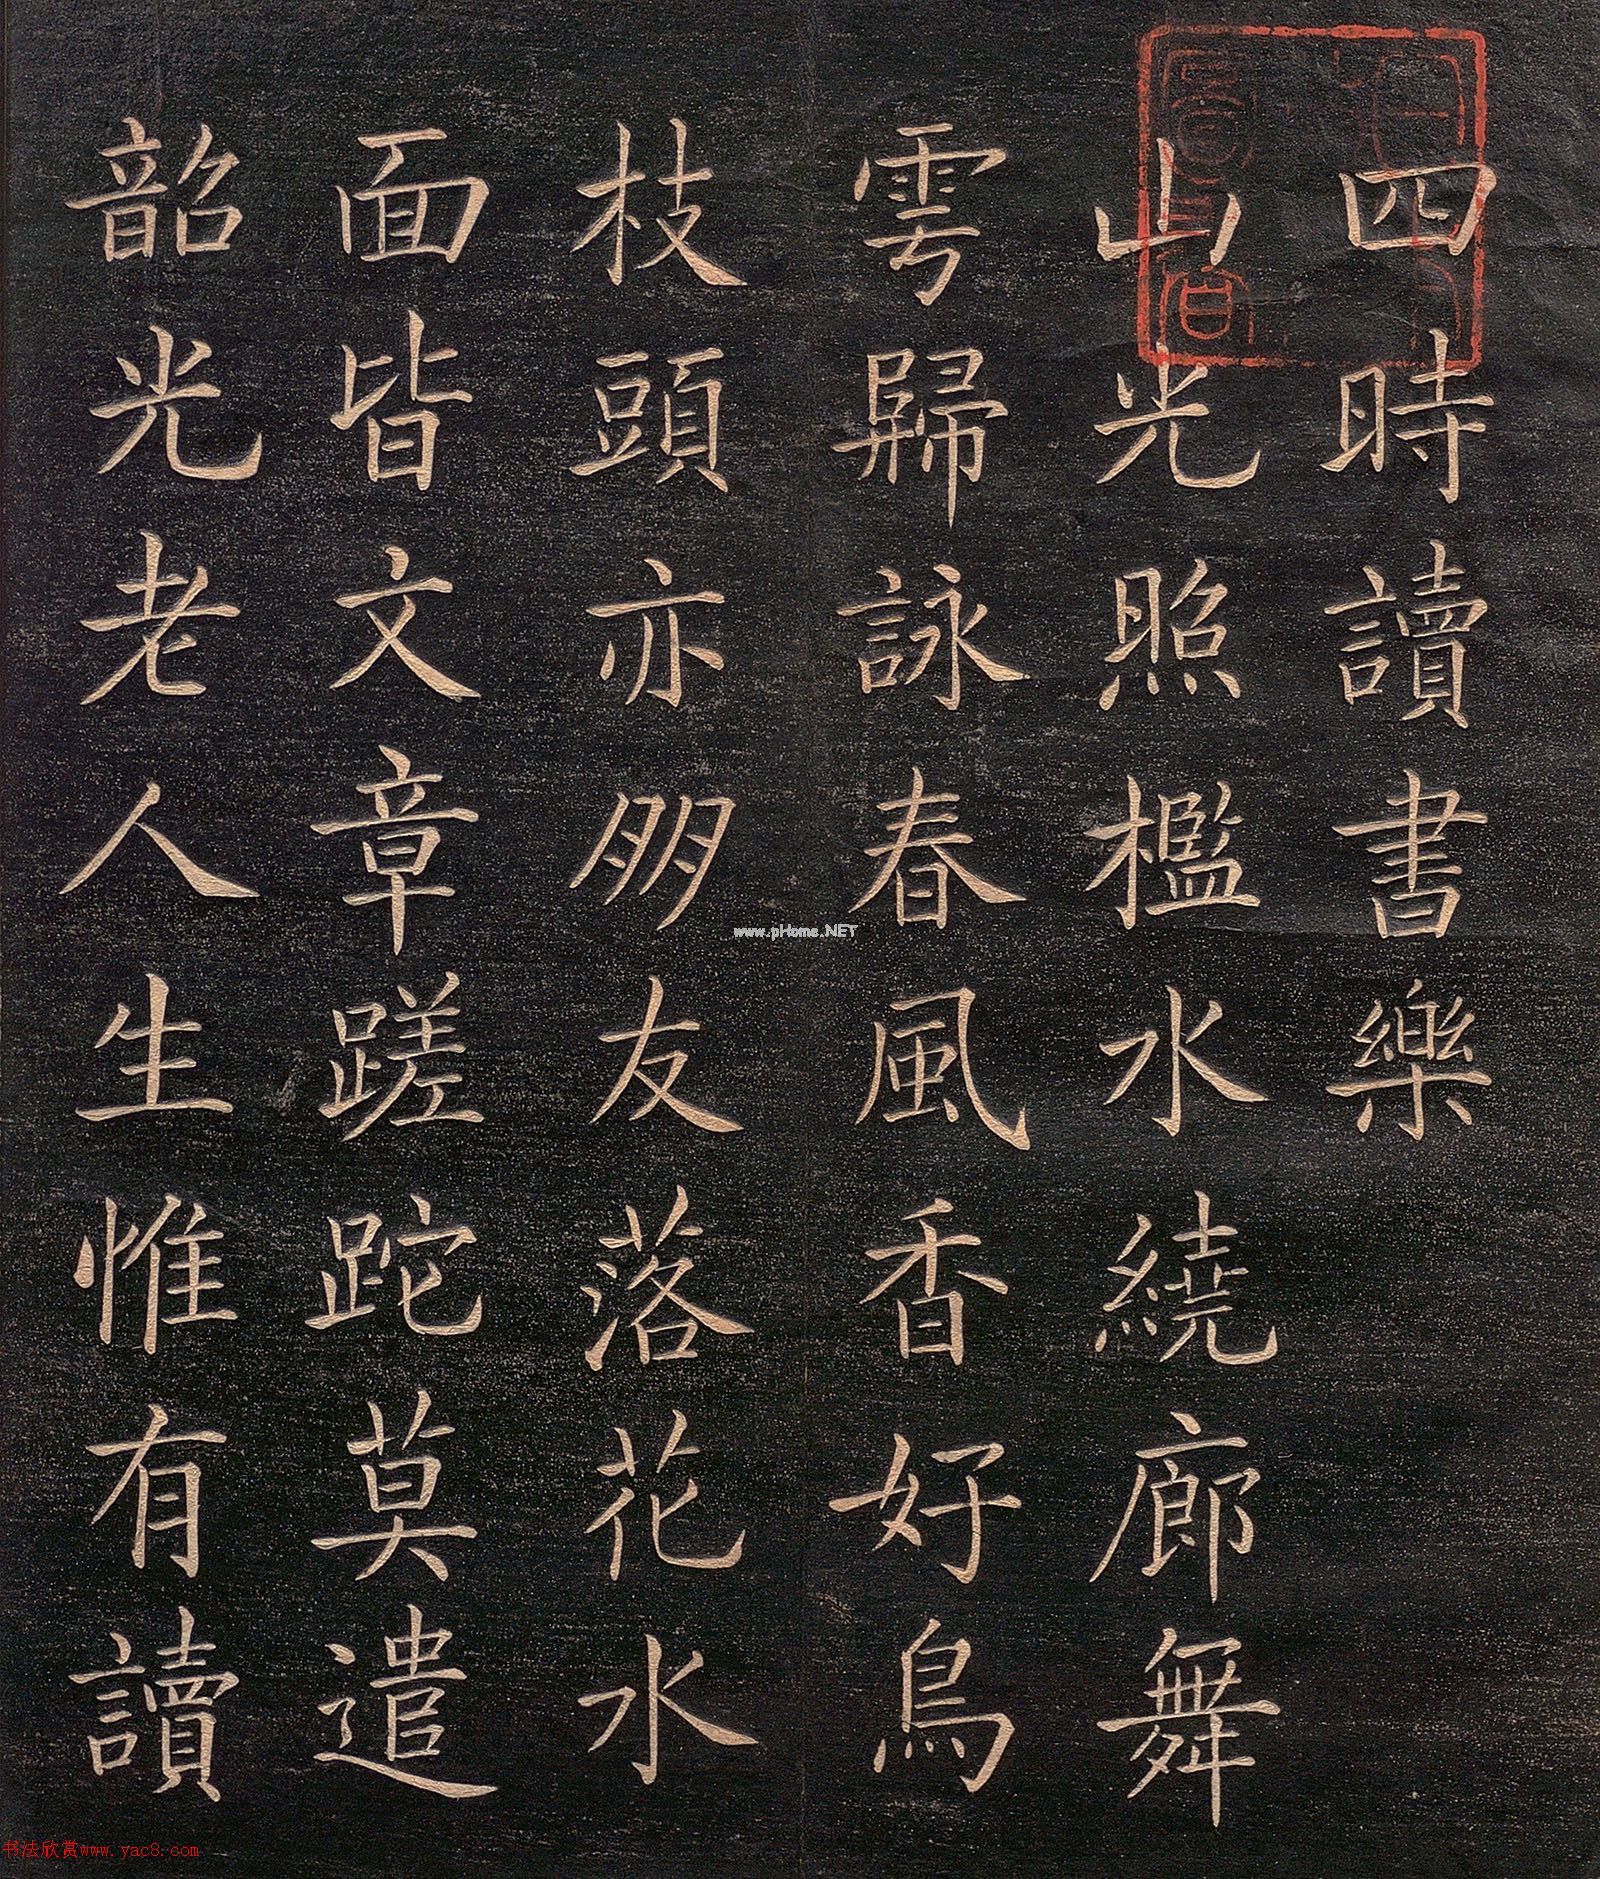 四時讀書樂
山光照檻水繞廊舞
雩歸詠春風香好鳥
枝頭亦朋友落花水
面皆文章蹉跎莫遣
韶光老人生惟有讀
www.pHome.NET
书法欣赏www.yac8.com